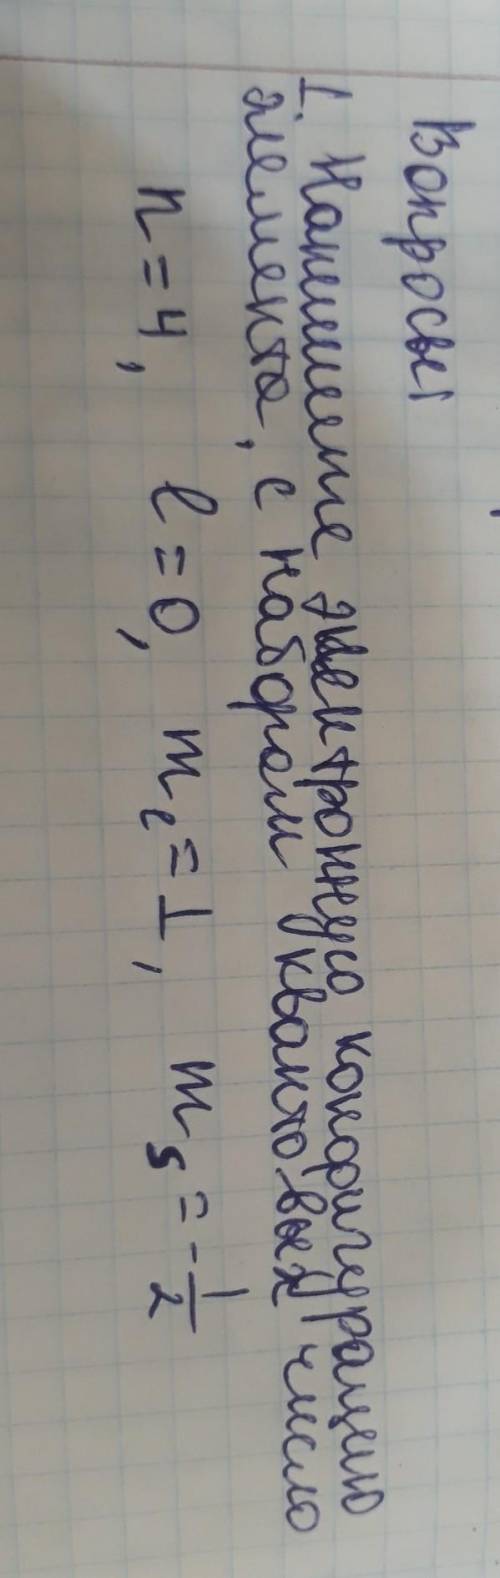 Вопросы
1. Напишете электронную конфигурацию
элемента, с набором квантовых число
n=4, l=0, m_l=1, m_s=-1/2